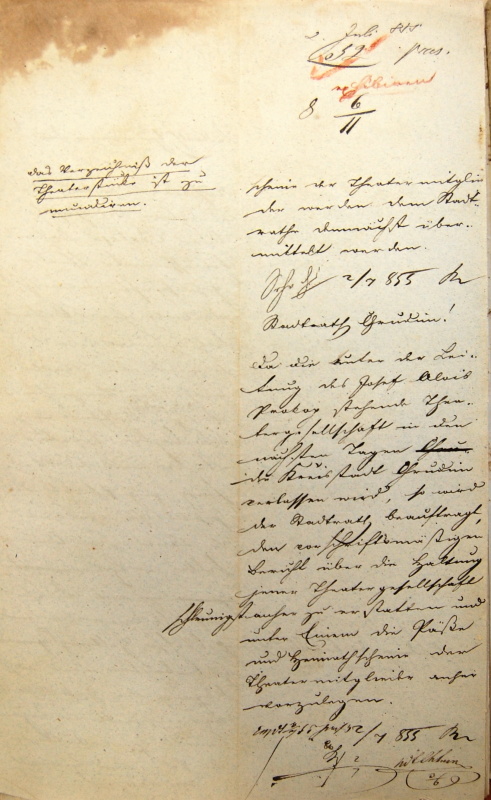 8 6/11
das Verzeichniß der
Theaterstücke ist zu
mundiren.
scheine der Theatermitglie
der werden dem Stadt-
rathe demnächst über-
mittelt werden.
2/7 855
Stadtrath Chrudim!
Da die unter der Lei-
tung des Josef Alois
Prokop stehende Thea-
tergesellschaft in den
nächsten Tagen
die Kreisstadt Chrudim
verlassen wird, so wird
der Stadtrath beauftragt,
den vorschriftsmäßigen
Bericht über die Haltung
jener Theatergesellschaft
schleunigst anher zu erstatten und
unter Einem die Päße
und Heimathscheine der
Theatermitglieder anher
vorzulegen.
2/7 855